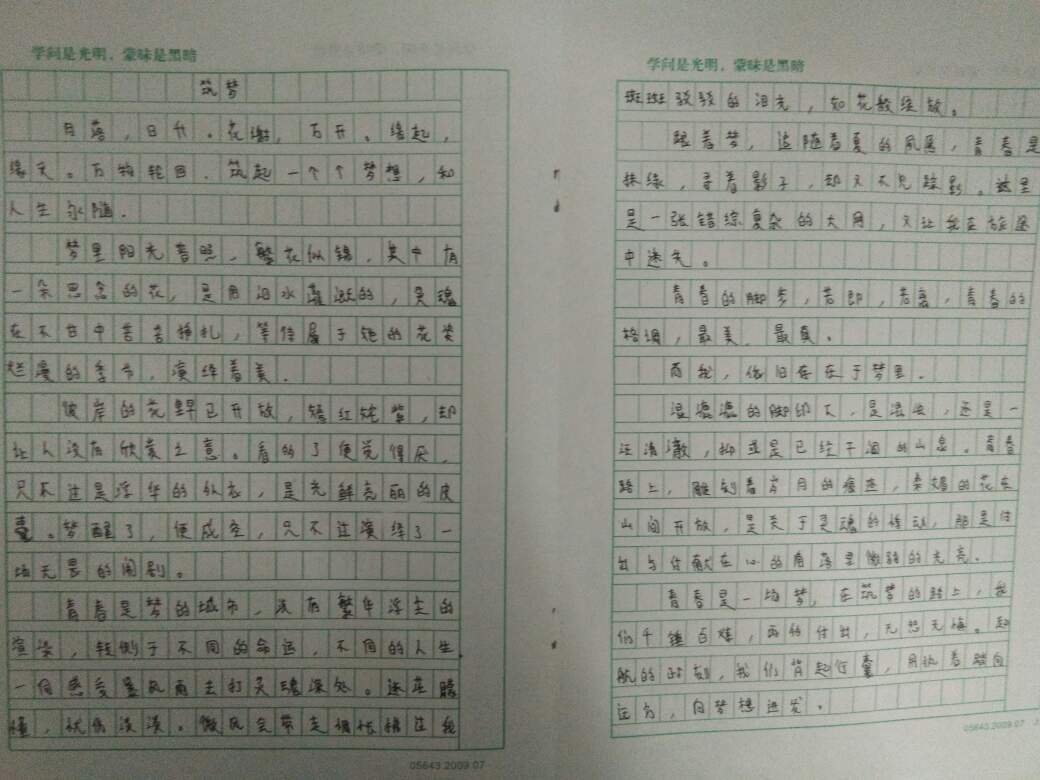 学问是光明，蒙昧是黑暗
筑梦
月落，日升。花谢，万开。缘起，
缘灭。万物轮回，筑起一个个梦想，和
人生永随.
梦里阳光普照，繁花似锦，其中有
一朵思念的花，是用泪水灌溉的，灵魂
在不甘中苦苦挣扎，等待属于她的花姿
烂漫的季节，演绎着美.
彼岸的花早已开放，嫣红姹紫，却
让人没有欣赏之意。看的了便觉得厌，
只不过是浮华的外衣，是光鲜亮丽的皮
囊。梦醒了，便成空，只不过演绎了一
场无畏的闹剧。
青春是梦的城市，没有繁华浮生的
渲染，转侧于不同的命运，不同的人生
一同感受暴风雨击打灵魂深处。迷茫朦
憧，忧伤淡淡。微风会带走惆怅掠过我
05643.2009.07
学问是光明，蒙昧是黑暗
斑斑驳驳的泪光，如花般绽放。
跟着梦，追随着夏的风尾，青春是
抹绿，寻着影子，却又不见踪影。这里
是一张错综复杂的大网，又让我在旅途
中迷失。
青春的脚步，若即，若离，青春的
格调，最美，最真。
而我，依旧存在于梦里.
湿漉漉的脚印下，是混浊，还是一
汪清澈，抑或是已经干涸的山泉。青春
路上，雕刻着岁月的痕迹，柔媚的花在
山间开放，是关于灵魂的悸动，那是付
出与付献在心的角落里微弱的光亮.
青春是一场梦，在筑梦的路上，我
们千锤百炼，再约付出，无怨无悔。起
航的时刻，我们背起行囊，用执着踏向
远方，向梦想进发。
05643.2009.07